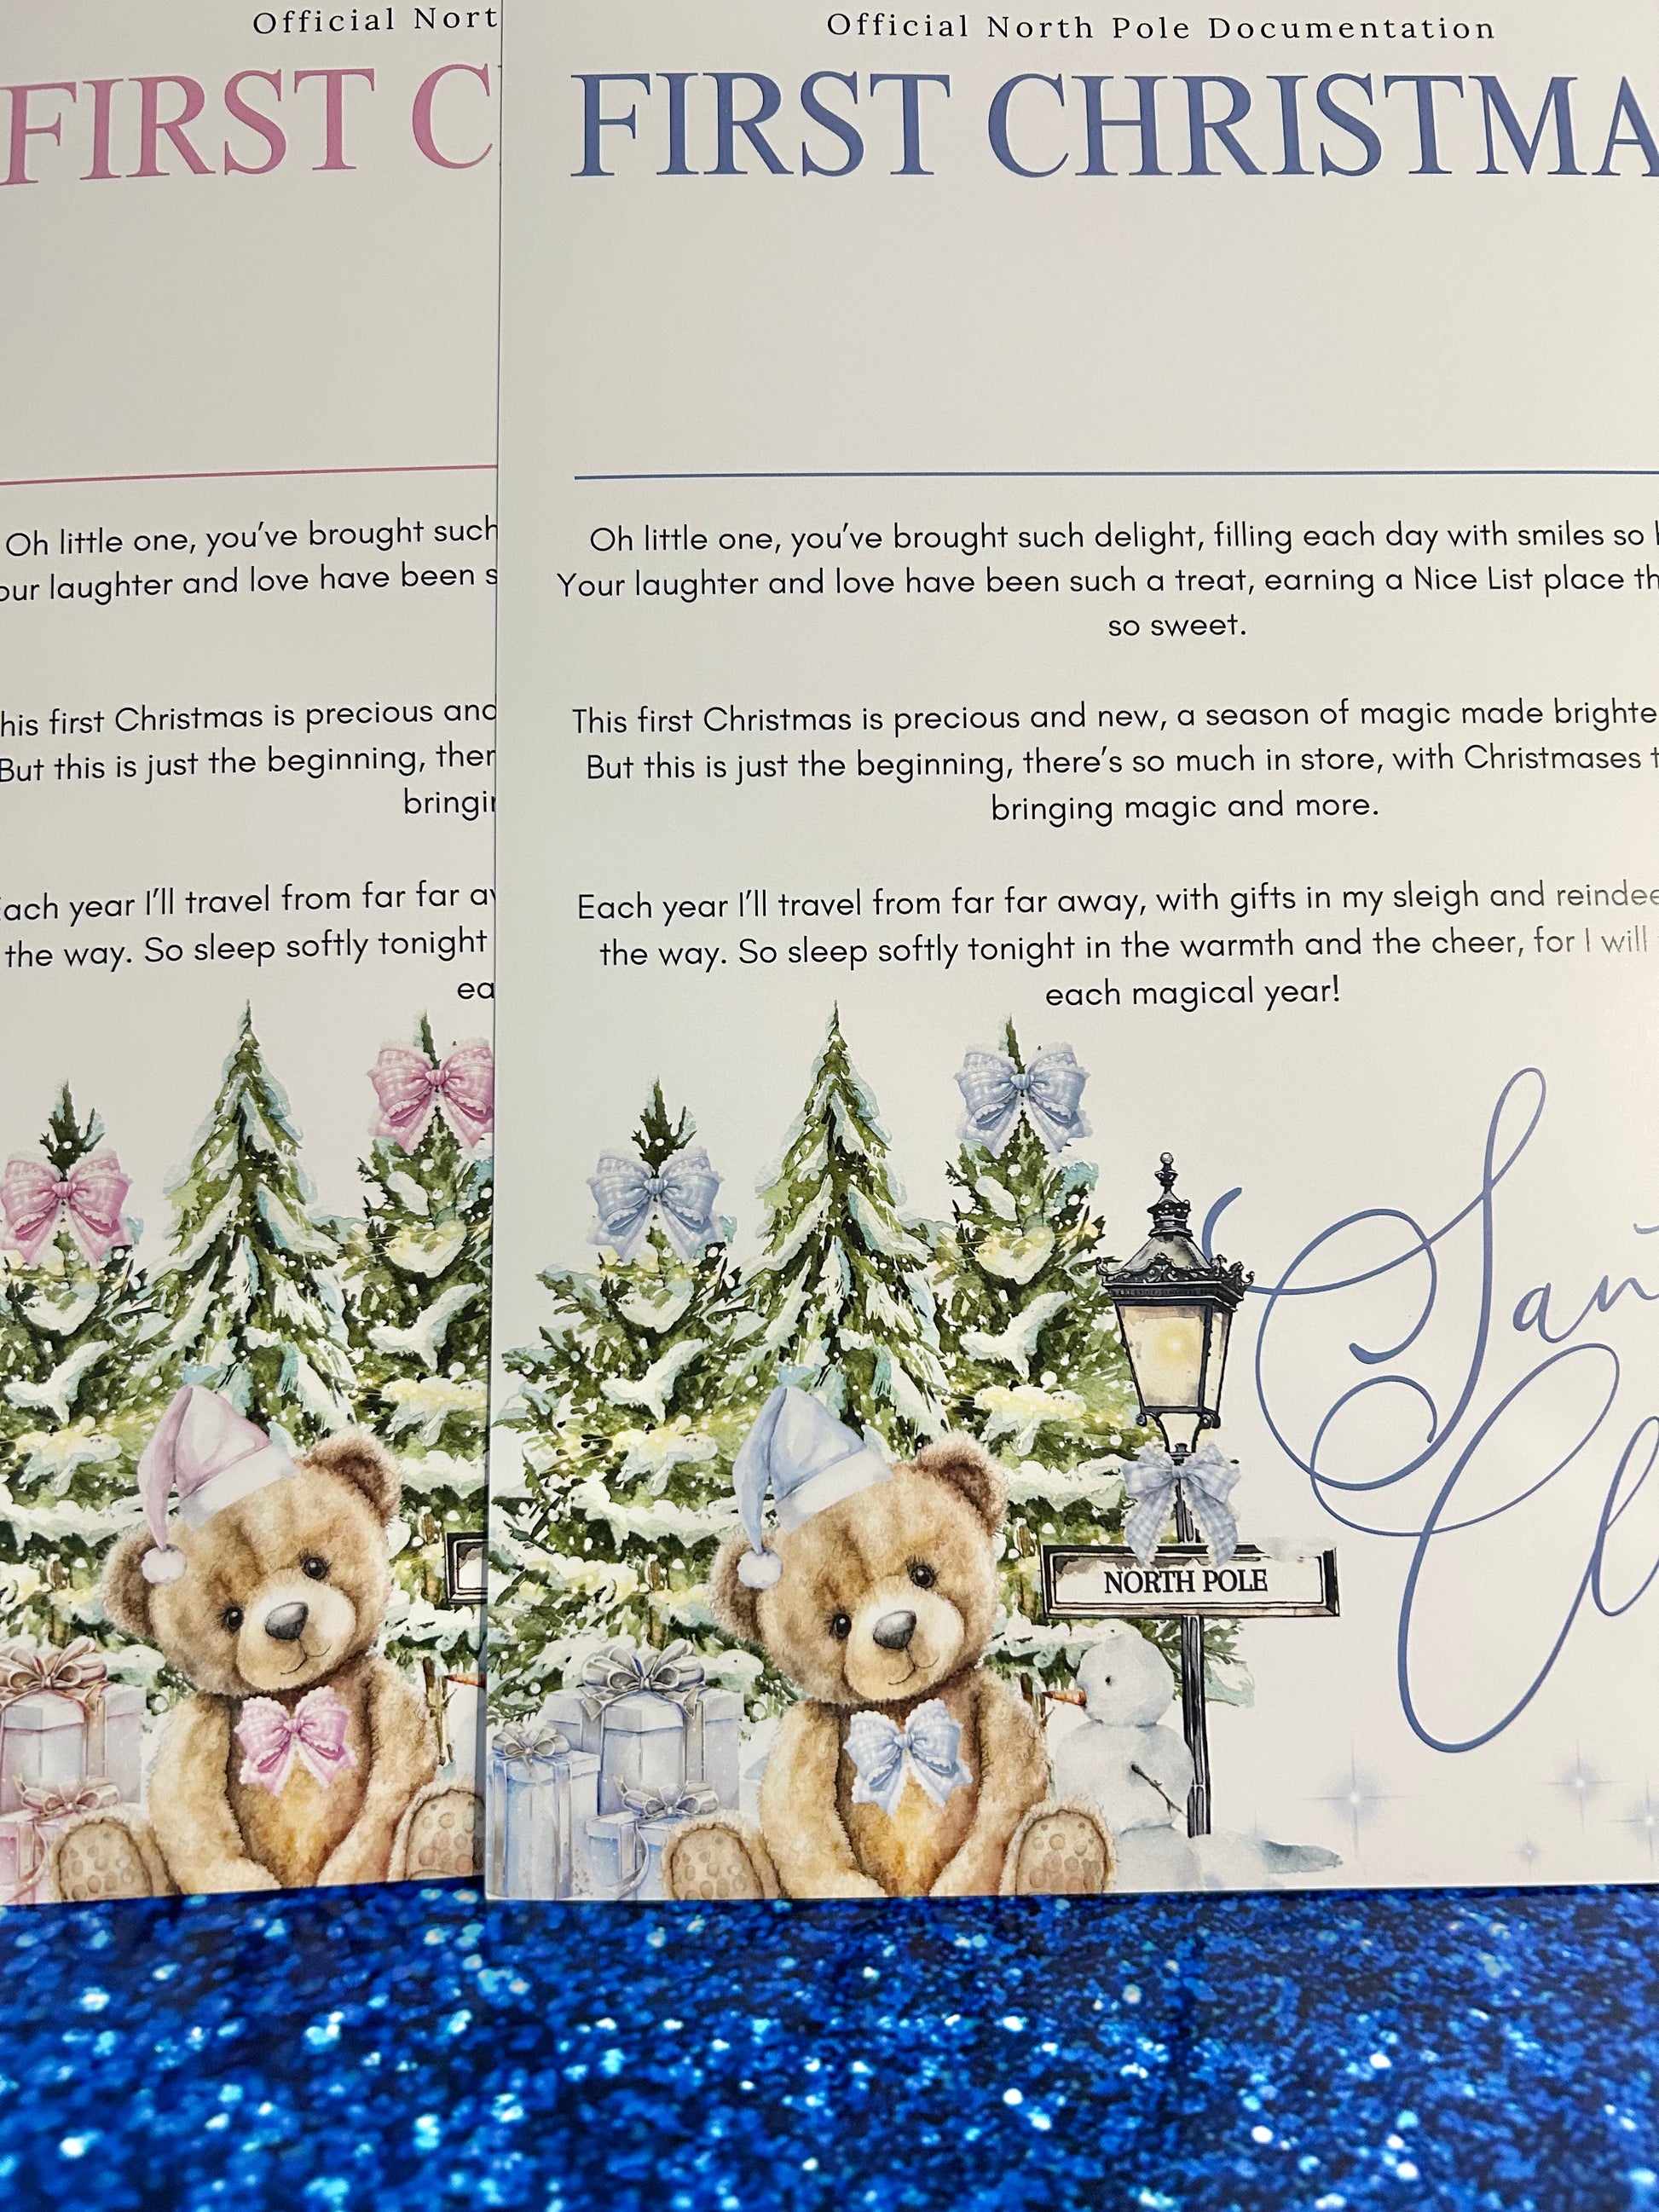 Official North Pole Documentation
FIRST
Oh little one, you've brought such
laughter and love have been
first Christmas is precious and
But this is just the beginning,
year I'll travel from far far
the way. So sleep softly tonight
FIRST
Oh little one, you've brought such delight, filling each day with smiles so
Your laughter and love have been such a treat, earning a Nice List place
so sweet.
This first Christmas is precious and new, a season of magic made
But this is just the beginning, there's so much in store, with Christmases
bringing magic and more.
Each year I'll travel from far far away, with gifts in my sleigh and
the way. So sleep softly tonight in the warmth and the cheer, for I will
each magical year!
NORTH POLE